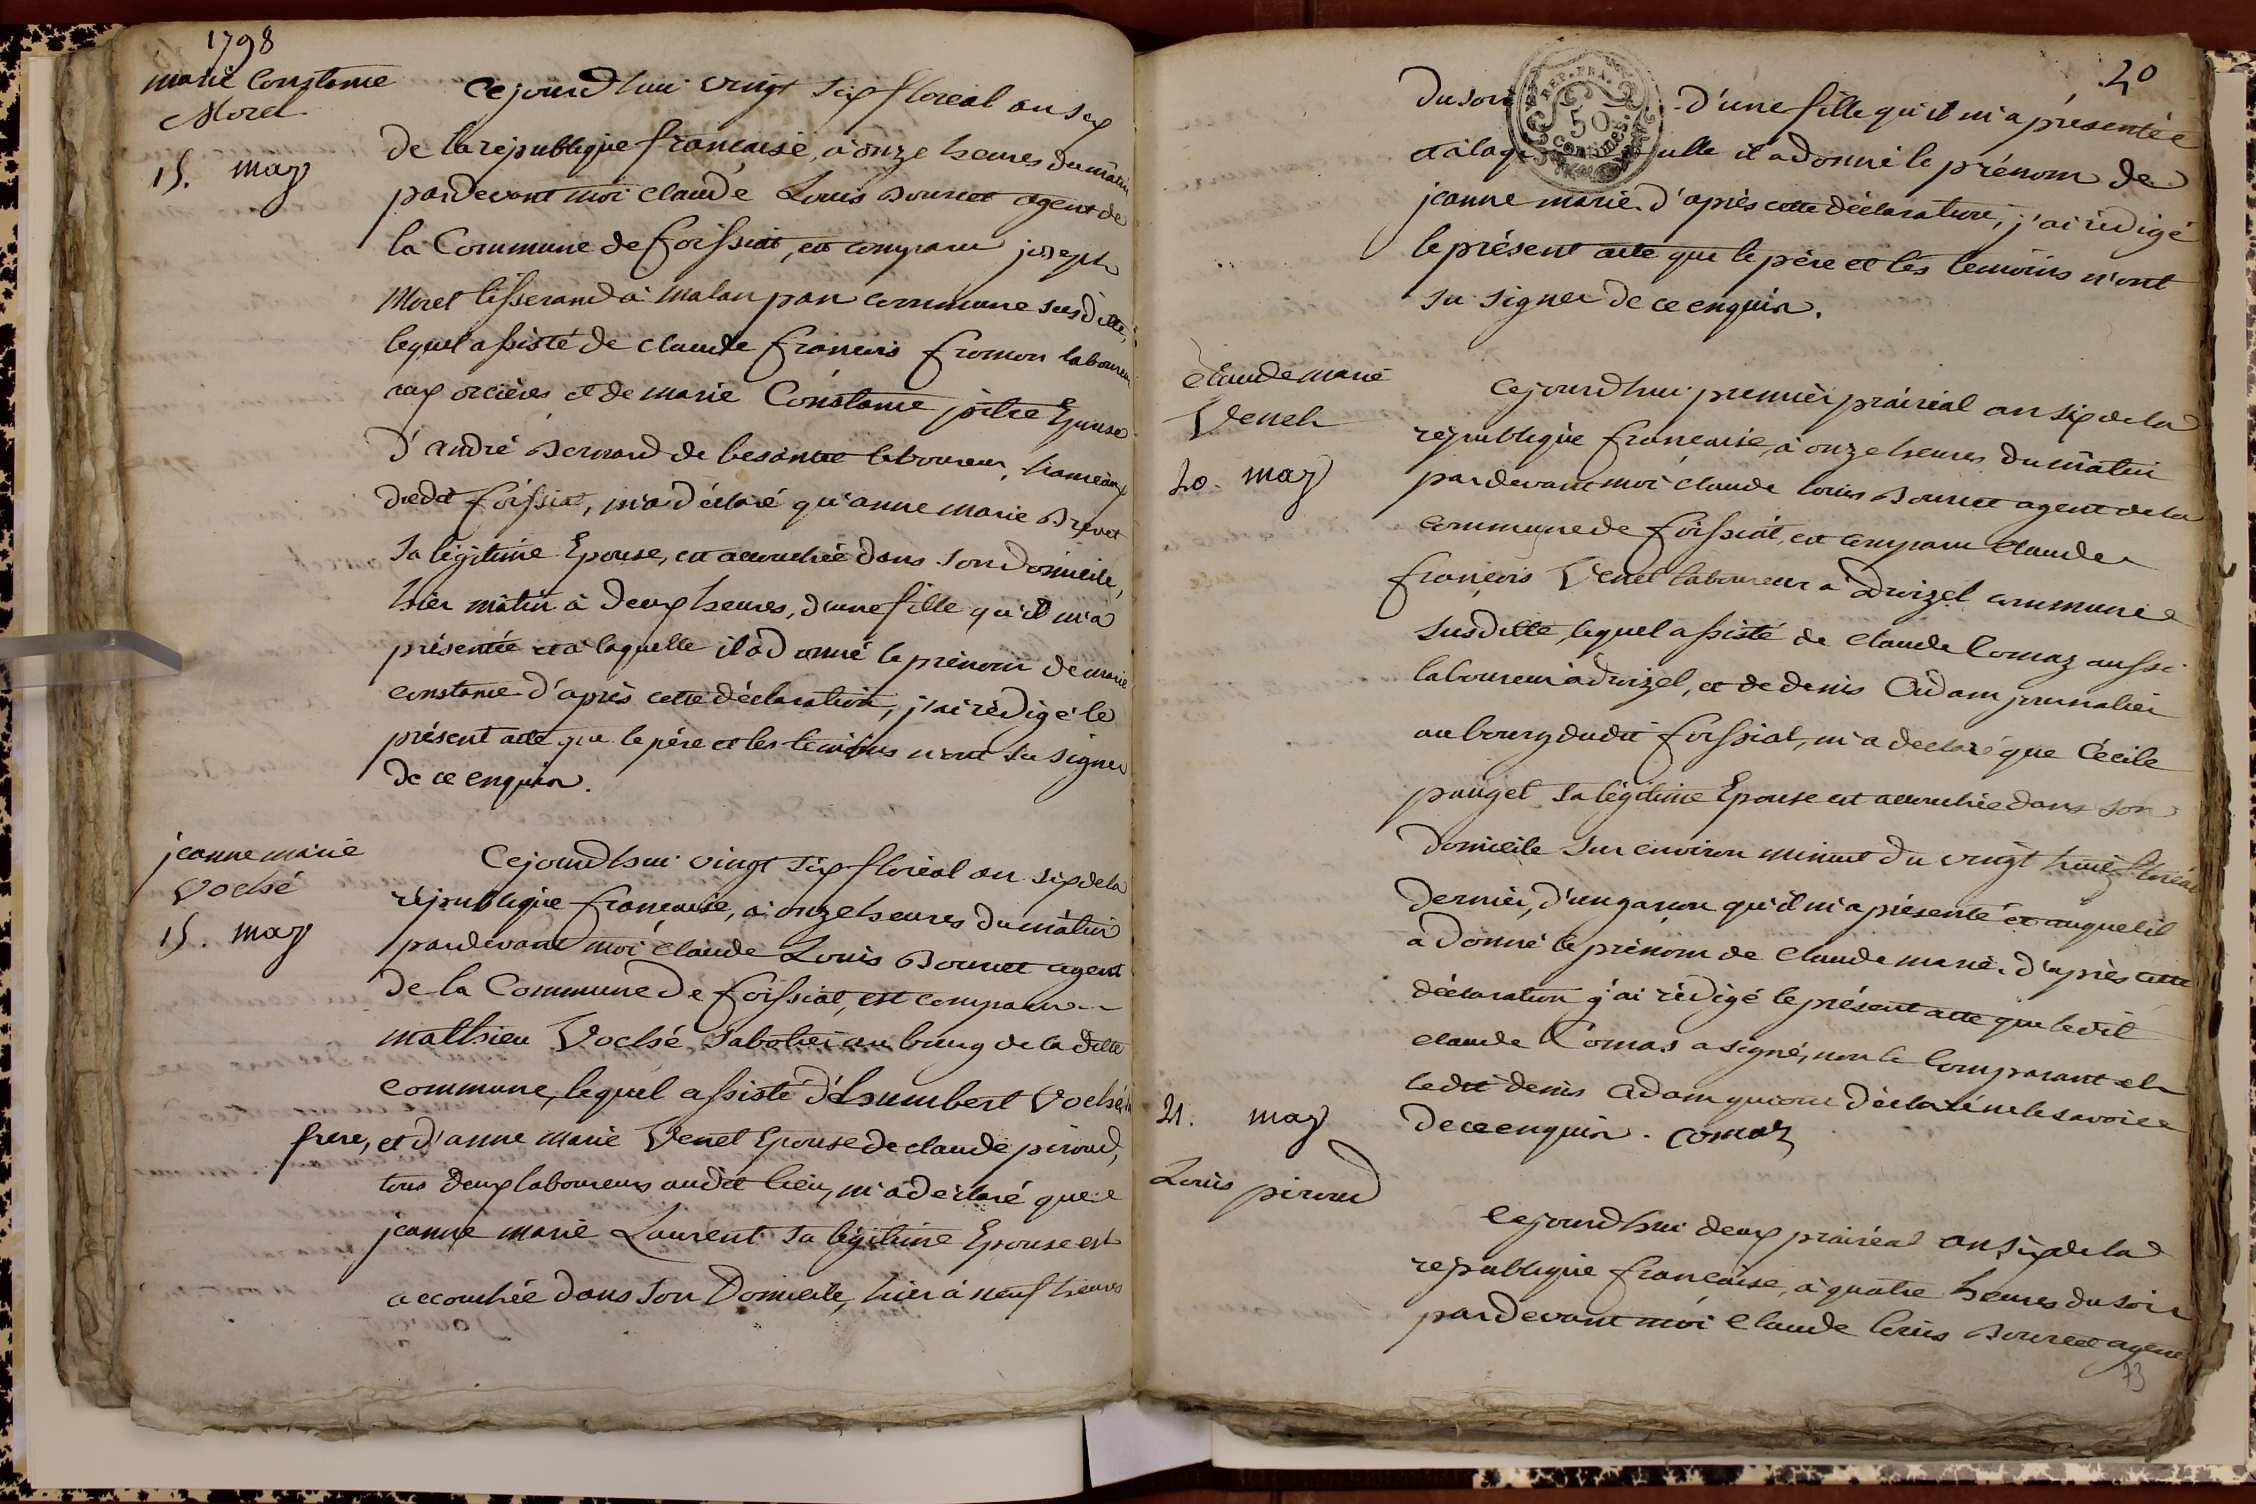 1798
marie Constance
Morel
15. may
Cejourdhui vingt six floreal an six
de la republique francaise, a onze heures du matin
pardevant moi claude Louis Bournet agent de
la Commune de foissiat, est comparu joseph
Morel tisserand à malanpan commune susditte,
lequel assisté de claude francois fromon laboureur
aux orcieres et de marie Constance pitre Epouse
d'andré Bernard de besantee laboureur, hameaux
dudit foissiat, m'a déclaré qu'anne marie Brevet
sa legitime Epouse, est accouchée dans son domicile,
hier matin à deux heures, d'une fille qu'il m'a
présentée et a laquelle il a donné le prénom de marie
constance d'après cette déclaration, j'ai rédigé le
présent acte que le père et les temoins n'ont su signer
de ce enquis.
jeanne marie
Voché
15. may
Cejourdhui vingt six floréal an six de la
république francaise, a onze heures du matin
pardevant moi claude Louis Bournet agent
de la Commune de foissiat, est comparu
mathieu Voché sabotier au bourg de la ditte
commune, lequel assisté d'humbert Voché
frere, et d'anne marie Venet Epouse de claude piroud,
tous deux laboureurs audit lieu, m'a déclaré que
jeanne marie Laurent sa légitime Epouse est
accouchée dans son Domicile, hier à neuf heures
20
REP. FRA.
50
Centimes.
du soir d'une fille qu'il m'a présentée
et a laquelle il a donné le prénom de
jeanne marie d'après cette déclaration, j'ai rédigé
le présent acte que le père et les temoins n'ont
su signer de ce enquis.
Claude marie
Venet
20. may
Cejourdhui premier prairial an six de la
république francaise, à onze heures du matin
pardevant moi claude louis Bournet agent de la
commune de foissiat, est comparu claude
francois Venet laboureur à drizel commune
susditte, lequel assisté de claude Comaz aussi
laboureur à drizel, et de denis Adam journalier
au bourg dudit foissiat, m'a declaré que Cécile
pauget sa légitime Epouse est accouchée dans son
domicile sur environ minuit du vingt huit floréal
dernier, d'un garcon qu'il m'a présenté et auquel il
a donné le prénom de claude marie. d'après cette
déclaration j'ai rédigé le présent acte que ledit
claude Comas a signé, non le comparant et
ledit denis Adam qui ont déclaré ne le savoir
de ce enquis. comaz
21. may
Louis piroud
Cejourdhui deux prairéal an six de la
republique francaise, à quatre heures du soir
pardevant moi claude louis Bournet agent
73